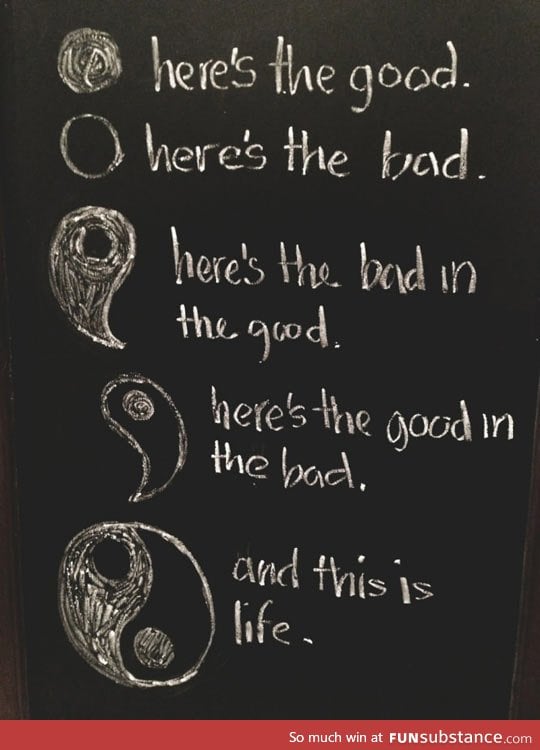 here's the good.
here's the bad.
here's the bad in
the good.
here's the good in
the bad.
and this is
life.
So much win at FUNsubstance.com